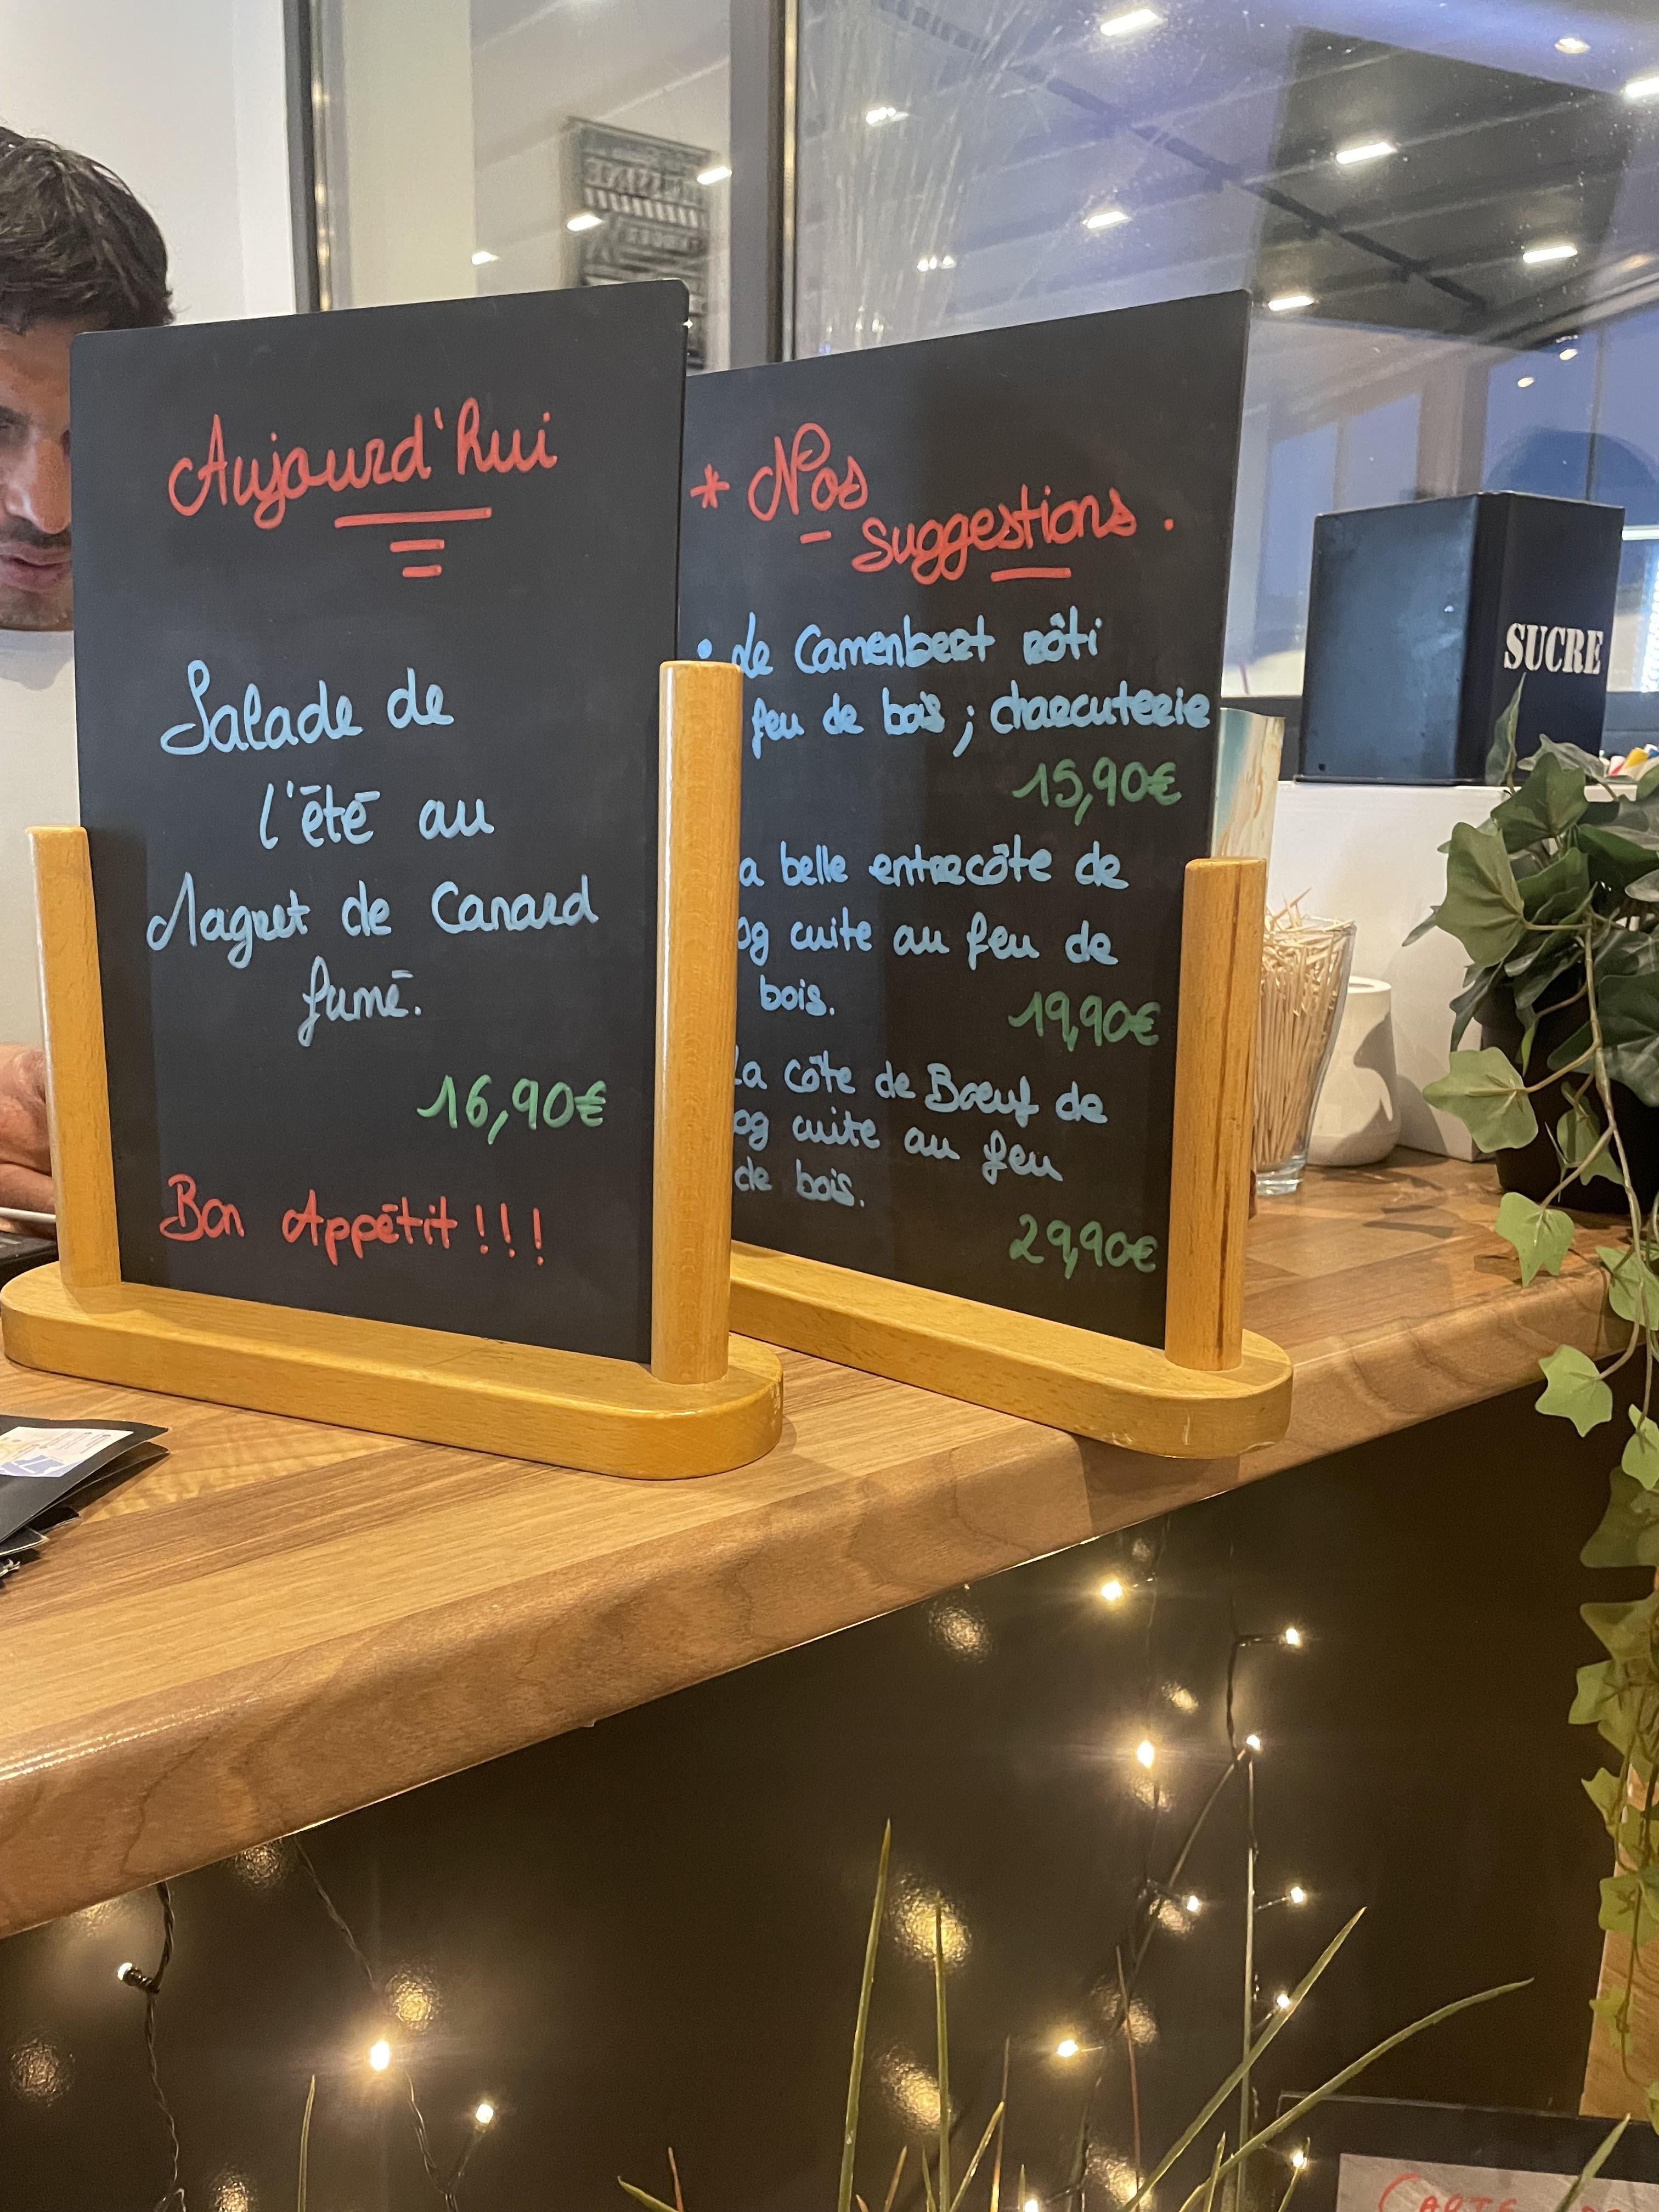 Aujourd'hui
Salade de
l'été au
Magret de Canard
fumé.
16,90€
Bon Appétit !!!
* Nos
suggestions.
• Le Camenbert rôti
feu de bois ; charcuterie
15,90€
a belle entrecôte de
0g cuite au feu de
bois.
19,90€
La côte de Bœuf de
0g cuite au feu
de bois.
29,90€
SUCRE